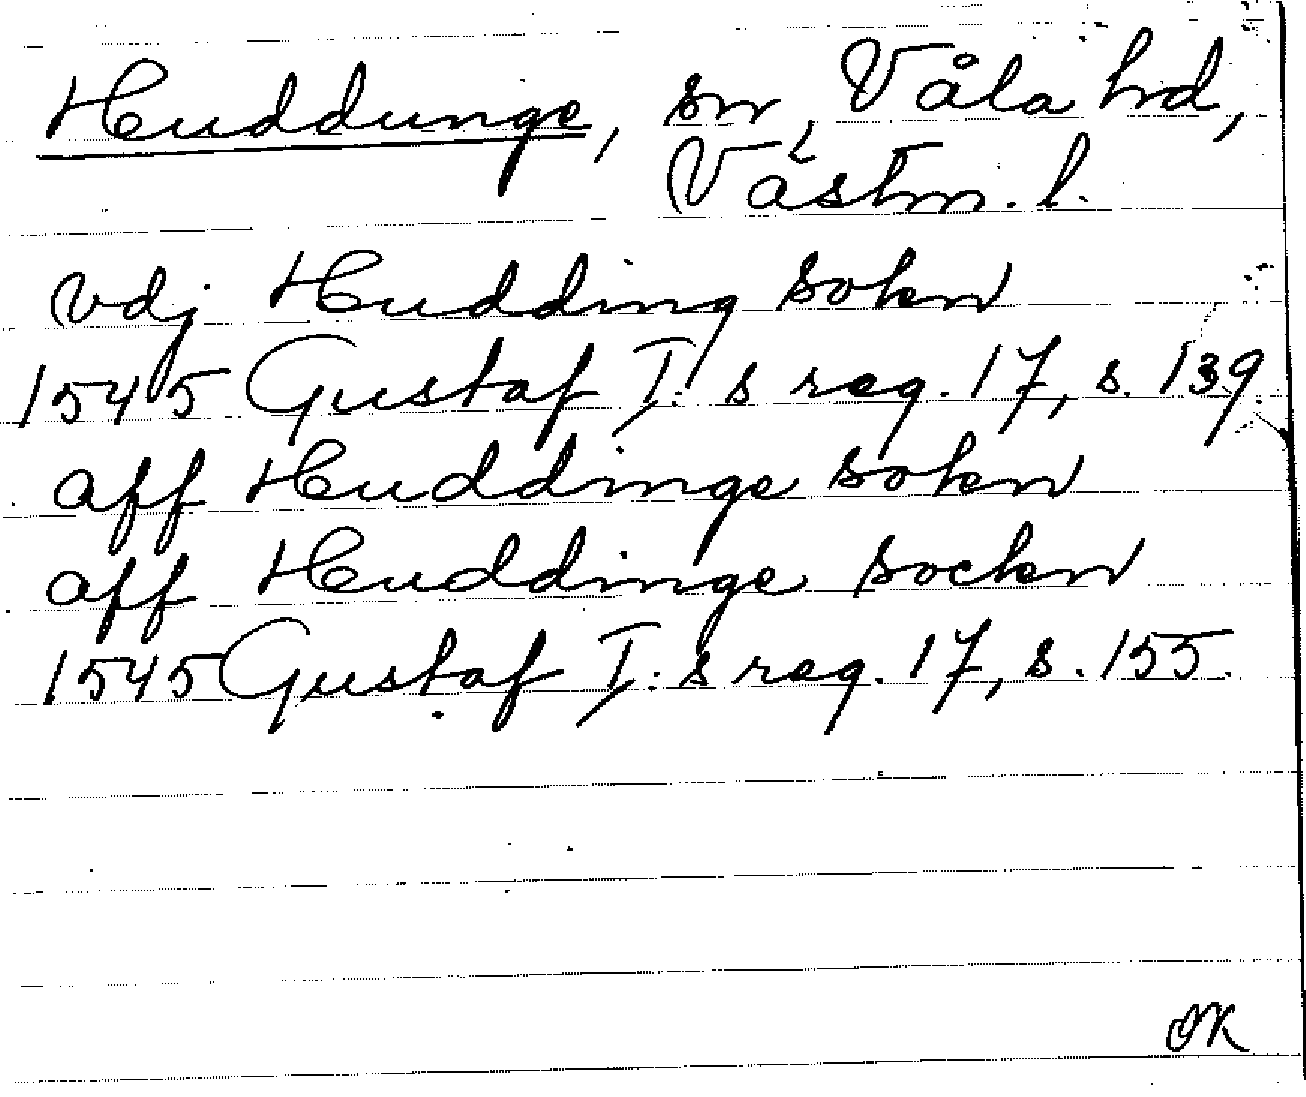 Huddunge, sn, Våla hd,
Västm. l.
vdj Hudding sokn
1545 Gustaf I:s reg. 17, s. 139
aff Huddinge sokn
aff Huddinge sockn
1545 Gustaf I:s reg. 17, s. 155.
OK